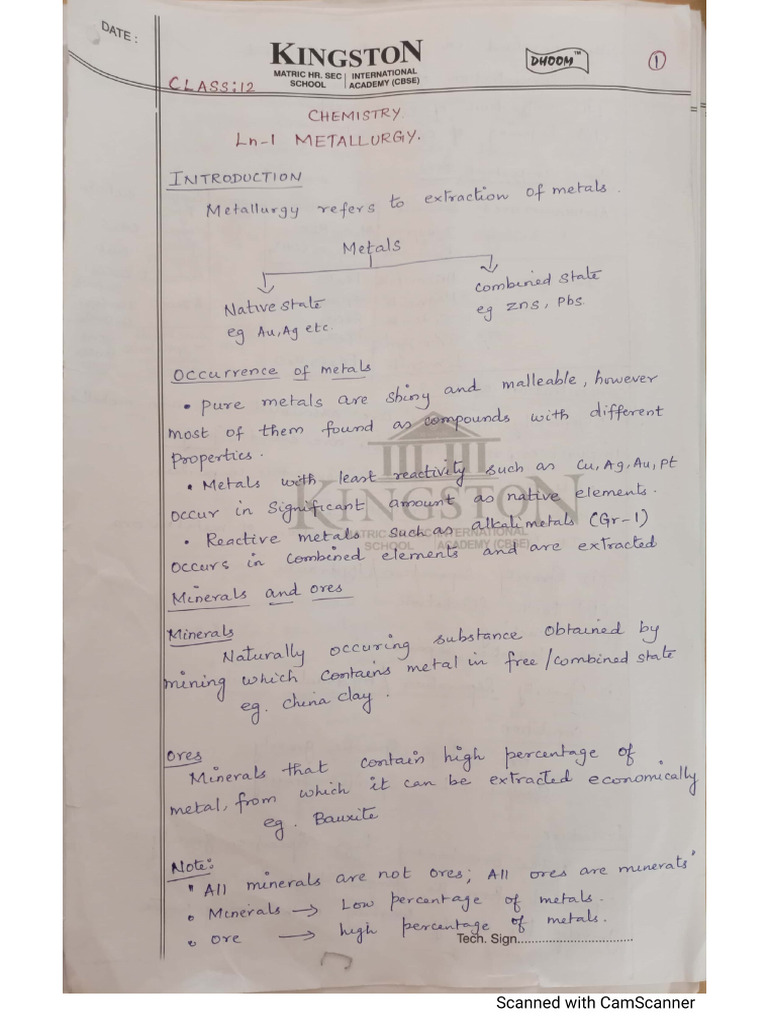 DATE :
KINGSTON
MATRIC HR. SEC SCHOOL | INTERNATIONAL ACADEMY (CBSE)
DHOOM™
1
CLASS: 12
CHEMISTRY.
Ln-1 METALLURGY.
INTRODUCTION
Metallurgy refers to extraction of metals.
Metals
Native state
eg Au, Ag etc.
Combined State
eg ZnS, Pbs
Occurrence of metals
• Pure metals are shiny and malleable, however
most of them found as compounds with different
properties.
• Metals with least reactivity such as Cu, Ag, Au, Pt
occur in significant amount as native elements.
• Reactive metals such as alkali metals (Gr-1)
occurs in combined elements and are extracted
KINGSTON
MATRIC HR. SEC SCHOOL | INTERNATIONAL ACADEMY (CBSE)
Minerals and ores
Minerals
Naturally occuring substance obtained by
mining which contains metal in free/combined state
eg. China clay.
Ores
Minerals that contain high percentage of
metal, from which it can be extracted economically
eg. Bauxite
Note:
"All minerals are not ores; All ores are minerals"
• Minerals → Low percentage of metals.
• ore → high percentage of metals.
Tech. Sign................................
Scanned with CamScanner